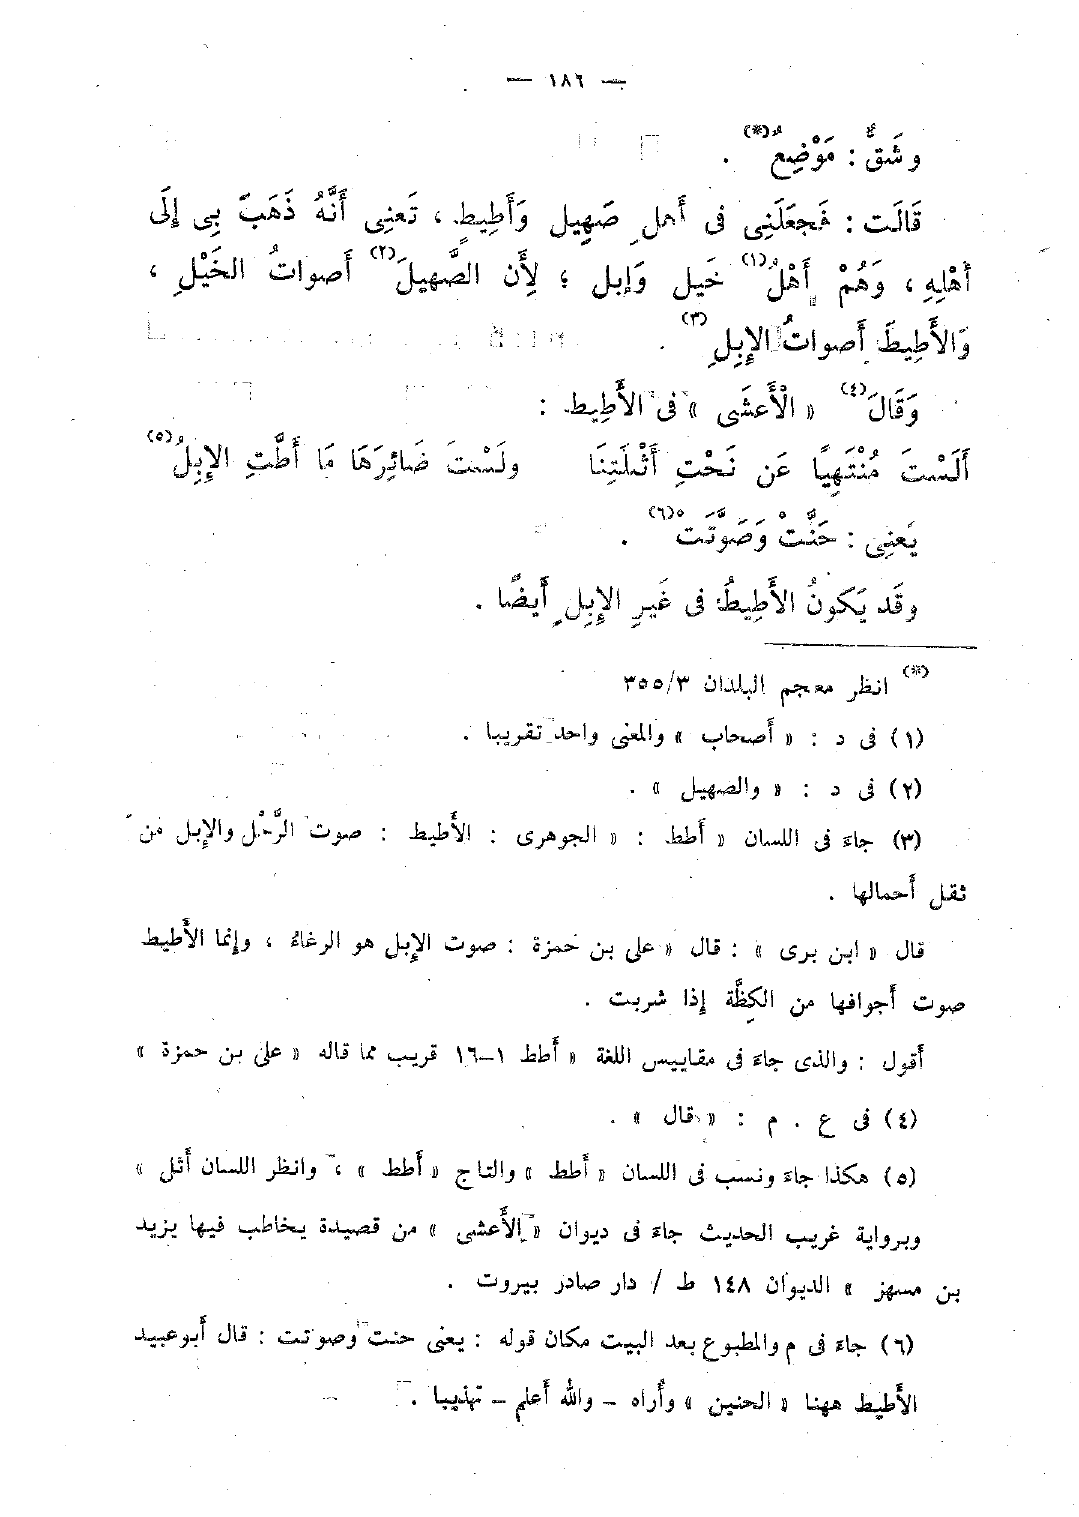 — ١٨٦ —
وشَقٌّ : مَوْضِعٌ(*) .
قَالَت : فَجعَلَنِى فى أَهل صَهِيل وَأَطِيطٍ ، تَعنِى أَنَّهُ ذَهَبَ بِى إِلَى
أَهْلِهِ ، وَهُمْ أَهْلُ(١) خَيل وَإبل ؛ لِأَن الصَّهيلَ(٢) أَصواتُ الخَيْلِ ،
وَالأَطِيطَ أَصواتُ الإِبِلِ(٣) .
وَقَالَ(٤) « الْأَعشَى » فى الأَطِيط :
أَلَسْتَ مُنْتَهِيًا عَن نَحْتِ أَثْلَتِنَا ولَسْتَ ضَائِرَهَا مَا أَطَّتِ الإِبِلُ(٥)
يَعنِى : حَنَّتْ وَصَوَّتَتْ(٦) .
وقَد يَكونُ الأَطِيطُ فى غَيرِ الإِبِلِ أَيضًا .
(*) انظر معجم البلدان ٣/٣٥٥
(١) فى د : « أَصحاب » والمعنى واحد تقريبا .
(٢) فى د : « والصهيل » .
(٣) جاءَ فى اللسان « أَطط : « الجوهرى : الأَطيط : صوت الرَّحْل والإِبل من
ثقل أَحمالها .
قال « ابن برى » : قال « على بن حمزة : صوت الإِبل هو الرغاءُ ، وإنما الأَطيط
صوت أَجوافها من الكِظَّة إذا شربت .
أَقول : والذى جاءَ فى مقاييس اللغة « أَطط ١–١٦ قريب مما قاله « على بن حمزة »
(٤) فى ع . م : « قال » .
(٥) هكذا جاءَ ونسب فى اللسان « أَطط » والتاج « أَطط » ، وانظر اللسان أَثل »
وبرواية غريب الحديث جاءَ فى ديوان « الأَعشى » من قصيدة يخاطب فيها يزيد
بن مسهر » الديوان ١٤٨ ط / دار صادر بيروت .
(٦) جاءَ فى م والمطبوع بعد البيت مكان قوله : يعنى حنت وصوتت : قال أَبوعبيد
الأَطيط ههنا « الحنين » وأُراه – والله أَعلم – تهذيبا .